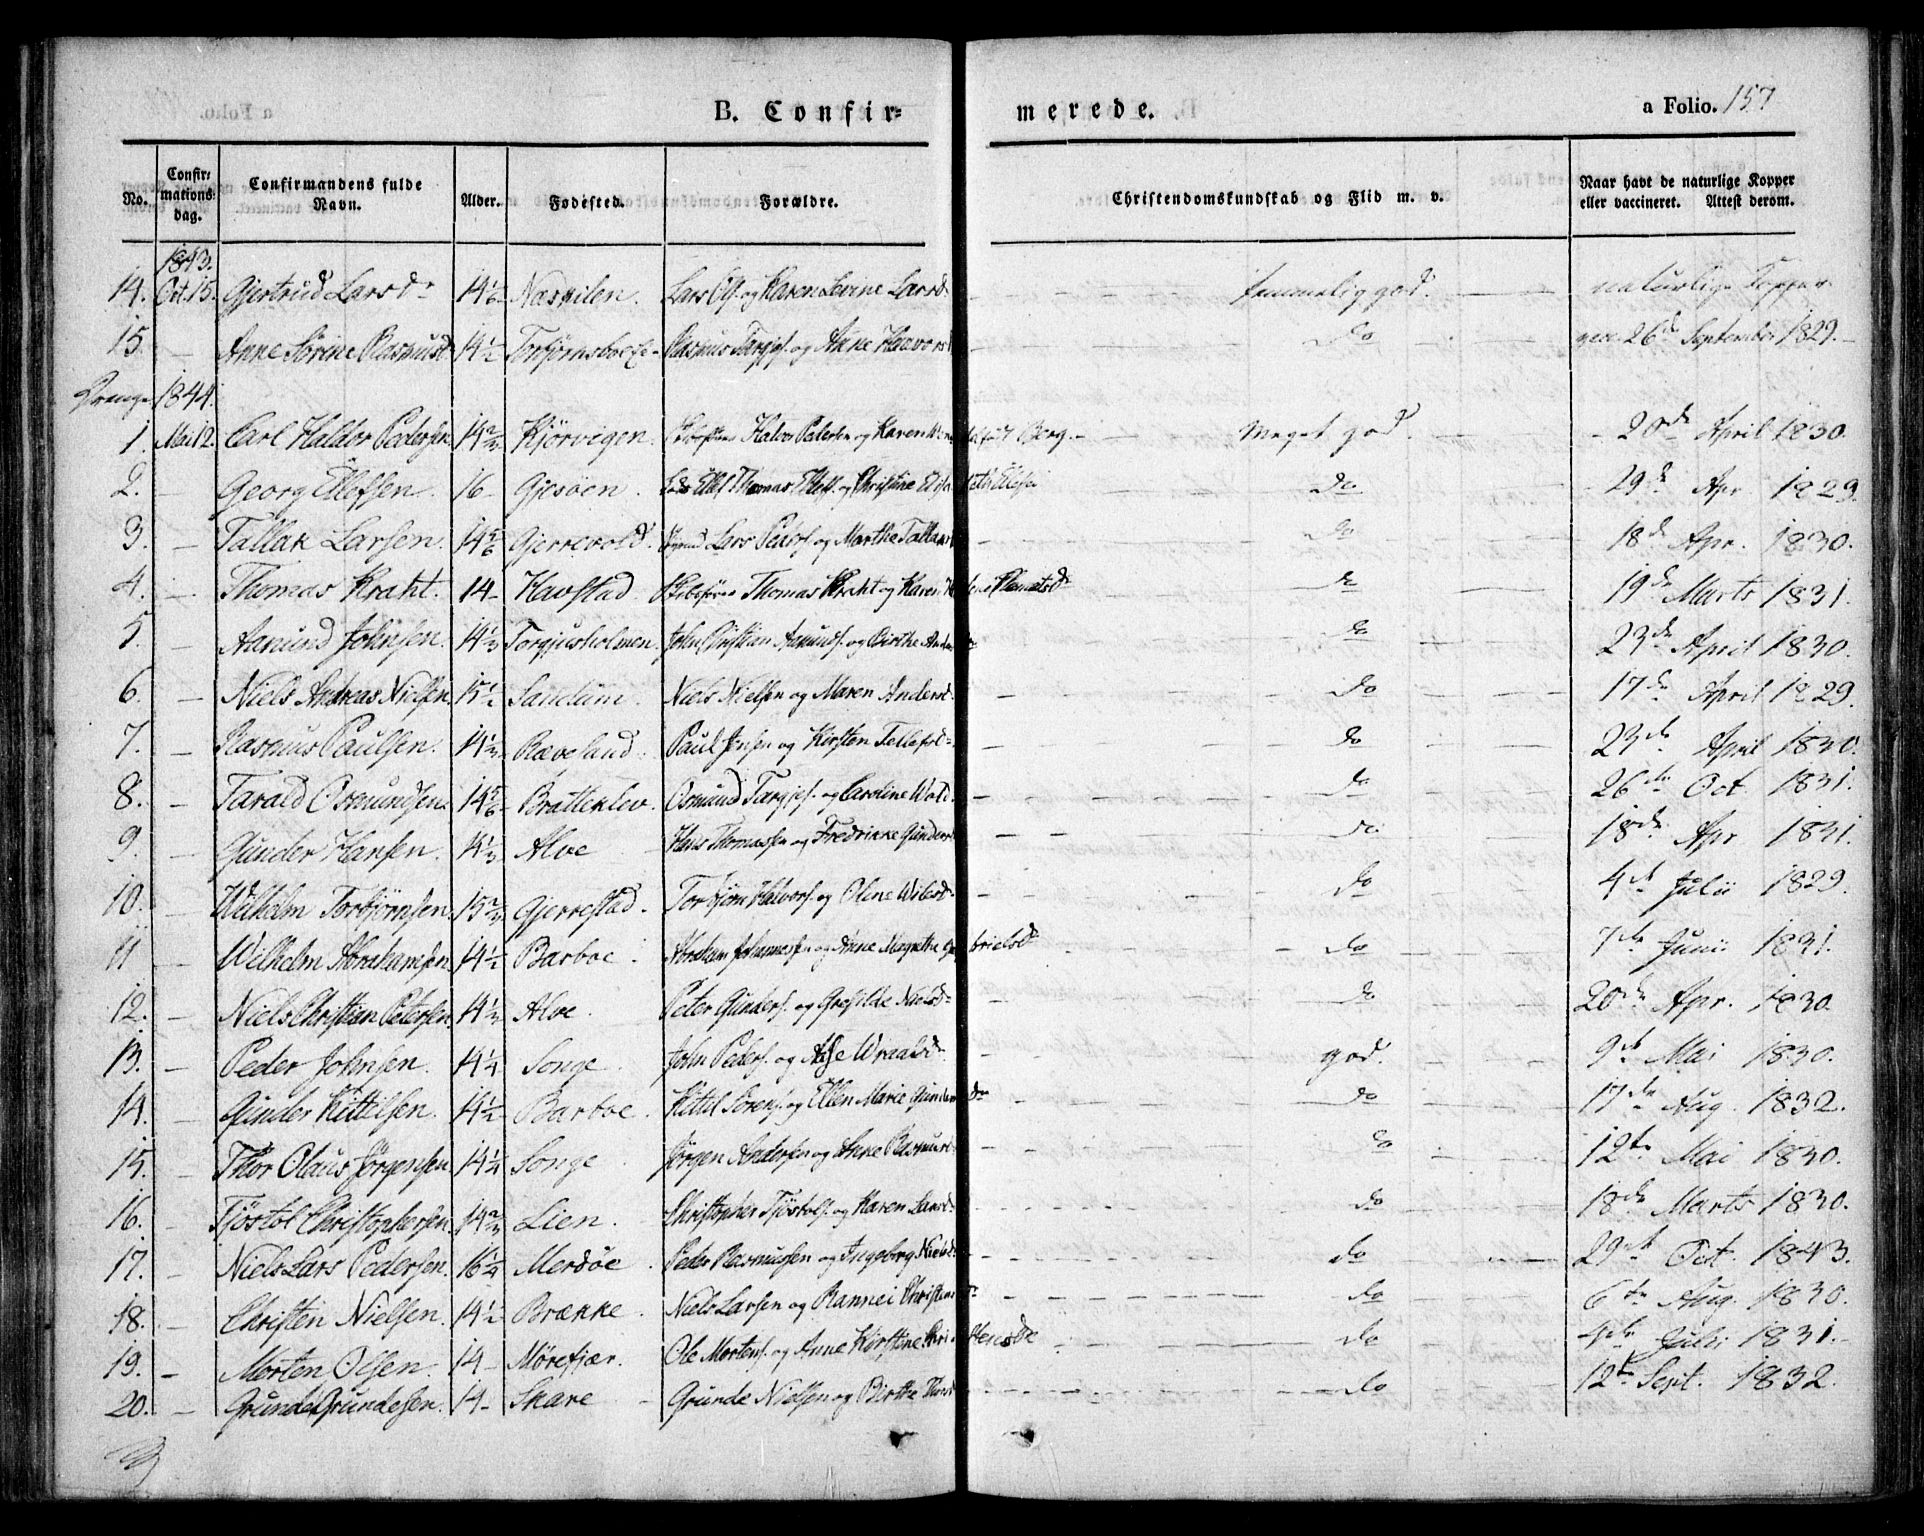 B. Confirmerede. a Folio. 157
No. Confirmationsdag. Confirmandens fulde Navn. Alder. Fødested. Forældre. Christendomskundskab og Flid m. v. Naar havt de naturlige Kopper eller vaccineret. Attest derom.
1843.
14. Oct. 15. Gjertrud Larsd. 14 1/6 Næskilen. Lars Ols. og Karen Levine Larsd. temmelig god. naturlige Kopper
15. — Anne Sørine Rasmusd. 14 1/2 Rasmus Targjes. og Anne Halvorsd. do 26d September 1829.
Drenge 1844.
1. Mai 12. Carl Haldor Pedersen. 14 2/3 Kjörvigen. Halvor Pedersen og Karen Berg. meget god. 20de April 1830.
2. — Georg Ellefsen. 16 Gjesöen. Thomas Ellefs. og Christine Elisabeth do 29de Apr. 1829.
3. — Tallak Larsen. 14 5/6 Gjerrevold. Lars Peders. og Marthe Tallaksd. do 18de Apr. 1830.
4. — Thomas Kraht. 14 Havstad. Thomas Kraht og Karen do 19de Marts 1831.
5. — Aanund Johnsen. 14 1/3 Torgjusholmen. John Christian Aanunds. og Birthe Andersd. do 23de April 1830.
6. — Niels Andreas Nielsen. 15 1/2 Sandum. Niels Nielsen og Maren Andersd. do 17de April 1829.
7. — Rasmus Paulsen. 14 1/3 Ræveland. Paul Jensen og Kirsten Tellefsd. do 23de April 1830.
8. — Tarald Osmundsen. 14 5/6 Bratteklev. Osmund Targjes. og Caroline Wold. do 26de Oct. 1831.
9. — Gunder Hansen. 14 1/3 Alve Hans Thomassen og Fredrikke Gundersd. do 18de Apr. 1831.
10. — Wilhelm Torbjörnsen. 15 2/3 Gjerrestad. Torbjörn Halvors. og Oline Nilsd. do 4de Julii 1829.
11 — Wilhelm Abrahamsen 14 1/2 Barboe. Abraham Johannessen og Anne Magrethe Gabrielsd. do 7de Junii 1831.
12. — Niels Christian Petersen. 14 1/3 Alve. Peter Gunders. og Gresilde Nielsd. do 20de Apr. 1830.
13. — Peder Johnsen. 14 1/4 Songe. John Peders. og Aase Wraalsd. god. 9de Mai 1830.
14. — Gunder Kittilsen. 14 1/2 Barboe. Kittil Sörens. og Ellen Marie Gundersd. do 17de Aug. 1832.
15. — Thor Olaus Jörgensen 14 1/4 Songe. Jörgen Andersen og Anne Rasmusd. do 12te Mai 1830.
16. — Tjöstol Christophersen. 14 2/3 Lien. Christopher Tjöstols. og Karen Larsd. do 18de Marts 1830.
17. — Niels Lars Pedersen. 16 1/4 Merdöe. Peder Rasmussen og Ingeborg Nielsd. do 29de Oct. 1843.
18. — Christen Nielsen. 14 1/2 Brække. Niels Larsen og Rannei Christensd. do 6te Aug. 1830.
19. — Morten Olsen. 14 Mörefjær. Ole Mortens. og Anne Kirstine Christensd. do 4de Julii 1831.
20. — Grunde Grundesen. 14 Skare Grunde Nielsen og Birthe do 12te Sept. 1832.